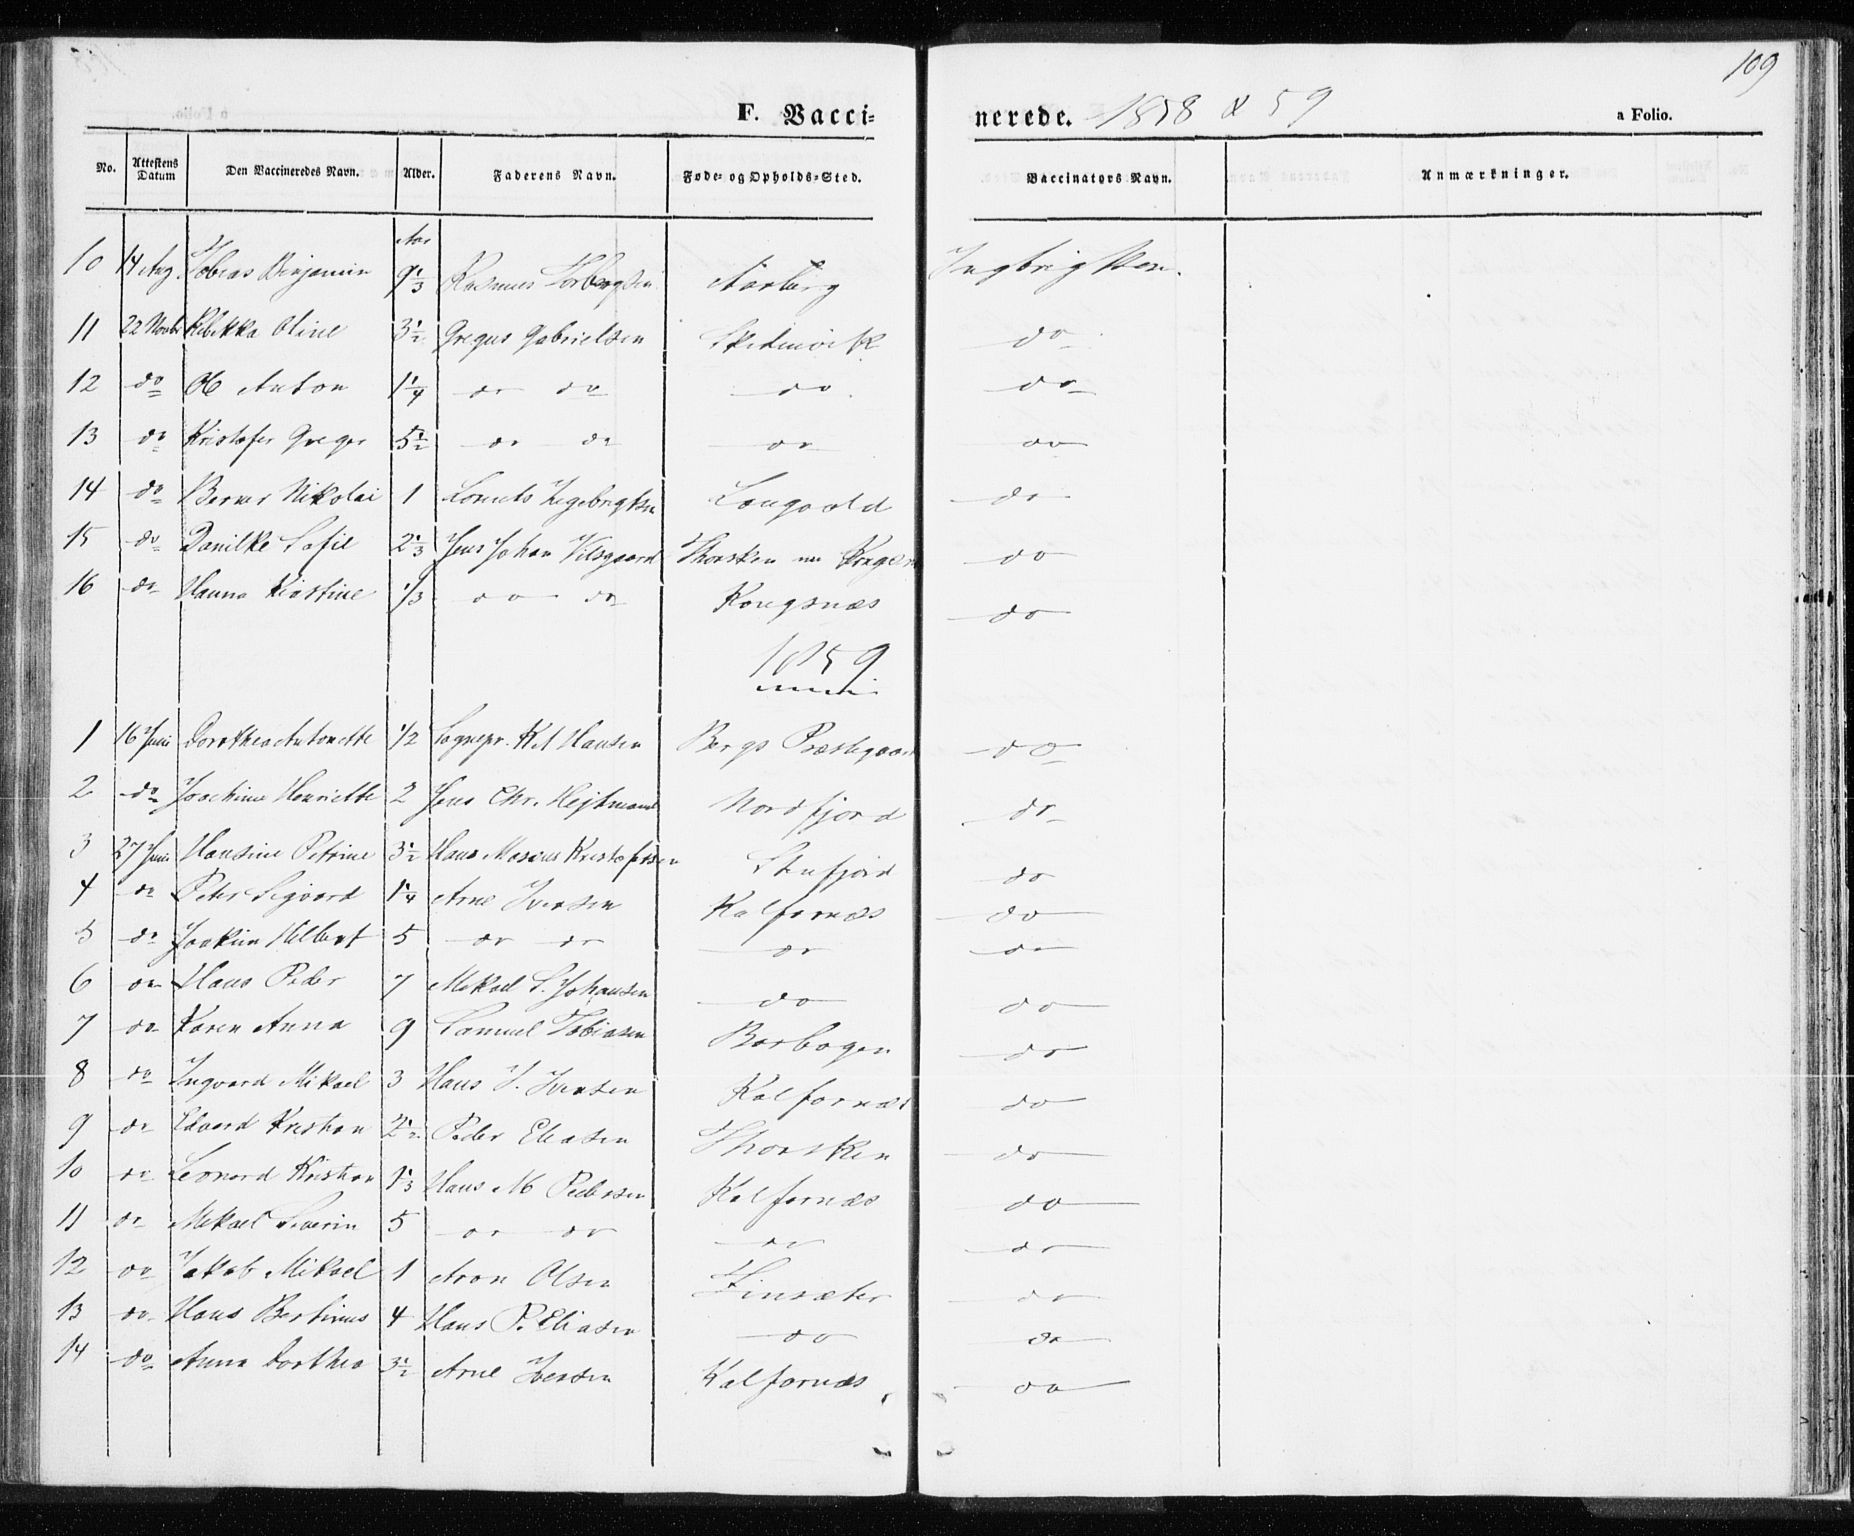 109
F. Vaccinerede. 1858 & 59
a Folio.
No. | Attestens Datum | Den Vaccineredes Navn. | Alder. | Faderens Navn. | Føde- og Opholds-Sted. | Vaccinators Navn. | Anmærkninger.
10 | 14 Aug | Tobias Benjamin | Aar 9 1/3 | Rasmus Torbergsen | | Ingbrigtsen.
11 | 22 Novbr | Rebekka Oline | 3 1/2 | Gregus Gabrielsen | | do
12 | do | Ole Anton | 1 1/4 | do do | do | do
13 | do | Kristofer Greger | 5 1/2 | do do | do | do
14 | do | Berner Nikolai | 1 | Lorents Ingebrigtsen | | do
15 | do | Danilke Sofie | 2 1/3 | Jens Johan Vilsgaard | Thorsken | do
16 | do | Hanna Kirstine | 1/3 | do do | Kongsnæs | do
1859
1 | 16 Juni | Dorothea Antonette | 1/2 | Sognepr. Hansen | Bergs Præstegaard | do
2 | do | Joachime Henriette | 2 | Jens Chr. Hejtmand | Nordfjord | do
3 | 27 Juni | Hansine Petrine | 3 1/2 | Hans Marius Kristofersen | | do
4 | do | Peter Sigvard | 1 1/4 | Arne Iversen | Kalfarnæs | do
5 | do | Joakim Hilbert | 5 | do do | do | do
6 | do | Hans Peder | 7 | Mikael S. Johansen | do | do
7 | do | Karen Anna | 9 | Samuel Tobiasen | Borbogen | do
8 | do | Ingvard Mikael | 3 | Hans J. Iversen | Kalfarnæs | do
9 | do | Edvard Kristian | 2 1/2 | Peder Eliasen | Thorsken | do
10 | do | Leonard Kristian | 1 1/3 | Hans M Pedersen | Kalfarnæs | do
11 | do | Mikael Severin | 5 | do do | do | do
12 | do | Jakob Mikael | 1 | Aron Olsen | Finsæter | do
13 | do | Hans Bertinus | 4 | Hans P. Eliasen | do | do
14 | do | Anna Dorthea | 3 1/2 | Arne Iversen | Kalfarnæs | do